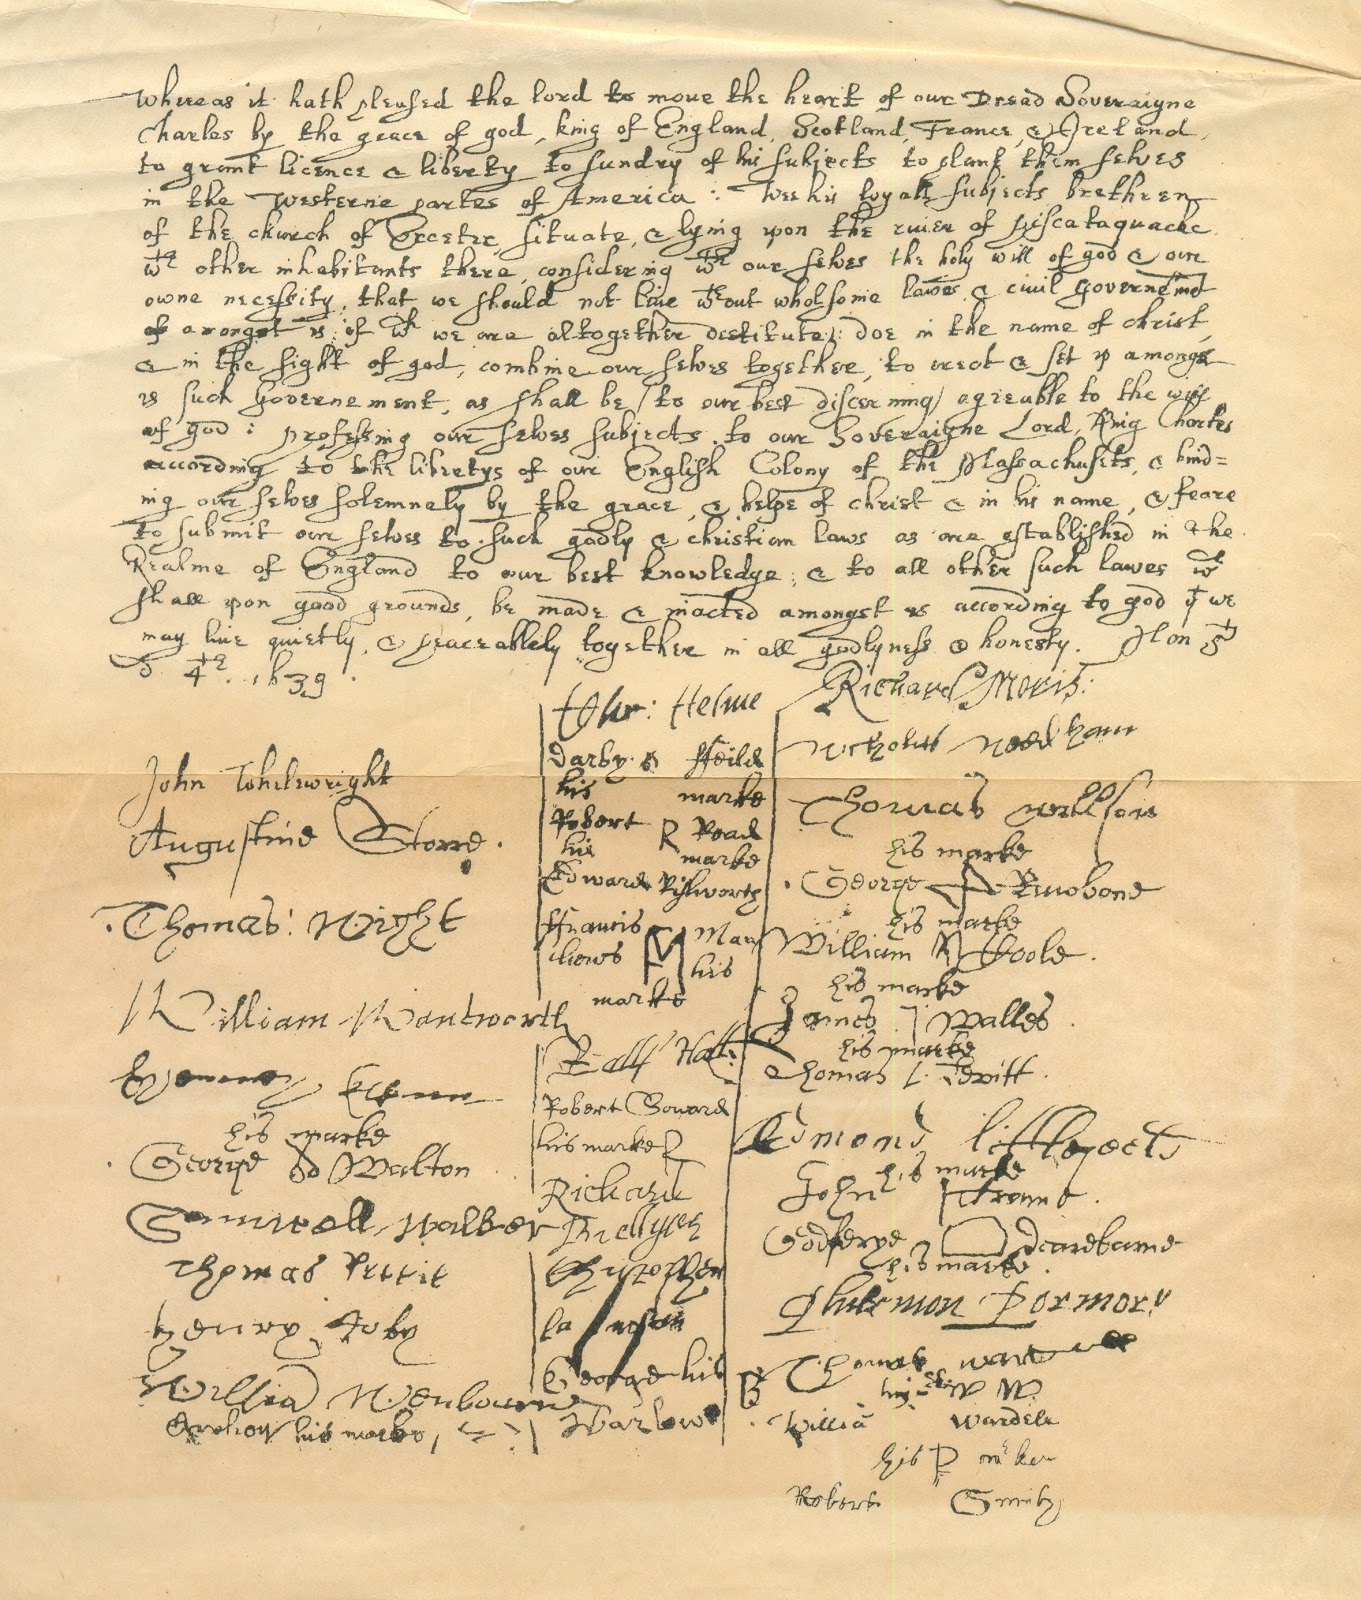 Whereas it hath pleased the lord to move the heart of our Dread Soveraigne
Charles by the grace of god, king of England, Scotland, France, & Ireland,
to grant licence & liberty to sundry of his subjects to plant them selves
in the Westerne partes of America : Wee his loyall subjects brethren
of the church of Exceter, situate, & lying upon the river of Piscataquacke
wth other inhabitants there, considering wth our selves the holy will of god & our
owne necessity, that we should not live wthout wholsome lawes, & civil government
amongst us, of wch we are altogether destitute; doe in the name of christ,
& in the sight of god, combine our selves together, to erect & set up amongst
us such Governement, as shall be (to our best discerning) agreable to the will
of god : professing our selves subjects to our Soveraigne Lord, King Charles
according to the libertys of our English Colony of the Massachusets, & bind=
ing our selves solemnely by the grace, & helpe of christ & in his name, & feare
to submit our selves to such godly & christian laws as are established in the
Realme of England to our best knowledge; & to all other such lawes wch
shall upon good grounds, be made & inacted amongst us according to god yt we
may live quietly, & peaceablely together in all godlyness & honesty. Mon 5th
d 4th. 1639.
John Whelewright
Augustine Storre.
Thomas: Wight
William Wantworth
his marke
George Walton
Samuell Walker
Thomas Pettit
Henry Roby
Willia Wenbourn
his marke,
Helme
Darby Feild
his marke
Robert R Read
his marke
Edward Rishworth
Francis Mathews
his
marke
Ralf Hall:
Robert Soward
his marke
Richard
Bullgar
Christopher
Lawson
George his
Barlow
Richard Moris:
Nicholas Needham
Thomas Willson
his marke
George Rawbone
his marke
William Coole.
his marke
James Walles.
his marke
Thomas L Levitt.
Edmond Littlefeeld
his marke
John Crame.
Godferye Dearebarne
his marke.
Philemon Pormort
Thomas Wardell
his W W
Willia Wardell
his
Robert Smith